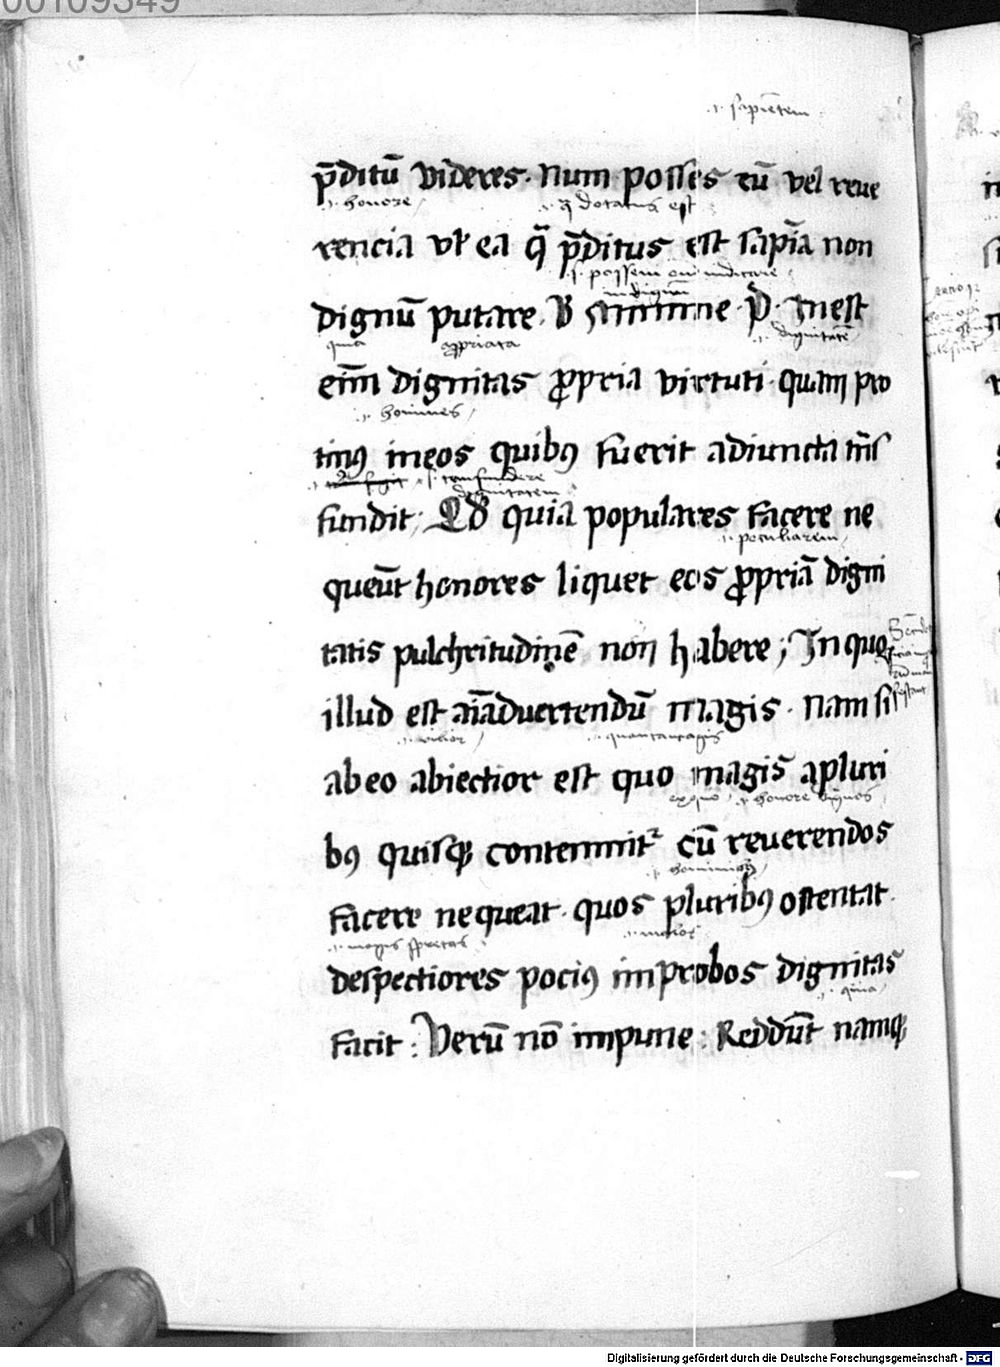 00109349
.i. sapiētem
p̄ditū videres. Num posses eū vel reue
.i. honore
rencia vł ea q̄ p̄ditus est sapīa non
dignū putare. B minime. P. Inest
.i. dignitatē
quia
eīm dignitas ꝓpria virtuti. quam pro
.i. homines
tinꝰ in eos quibꝰ fuerit adiuncta trās
.s. transfundere dignitatem
fundit. Qđ quia populares facere ne
.i. peculiarem
queūt honores liquet eos ꝓpriā digni
tatis pulchritudinē non habere; In quo
illud est aīaduertendū magis. Nam si
.i. vilior
ab eo abiectior est quo magis a pluri
ex quo .i. honore dignos
bꝰ quisqꝫ contemnit᷑ cū reuerendos
.i. hominibꝰ
facere nequeat. quos pluribꝰ ostentat.
.i. magis spretos
.i. malos
despectiores pociꝰ improbos dignitas
.i. quia
facit: Verū nō impune: Reddūt namqꝫ
Digitalisierung gefördert durch die Deutsche Forschungsgemeinschaft - DFG